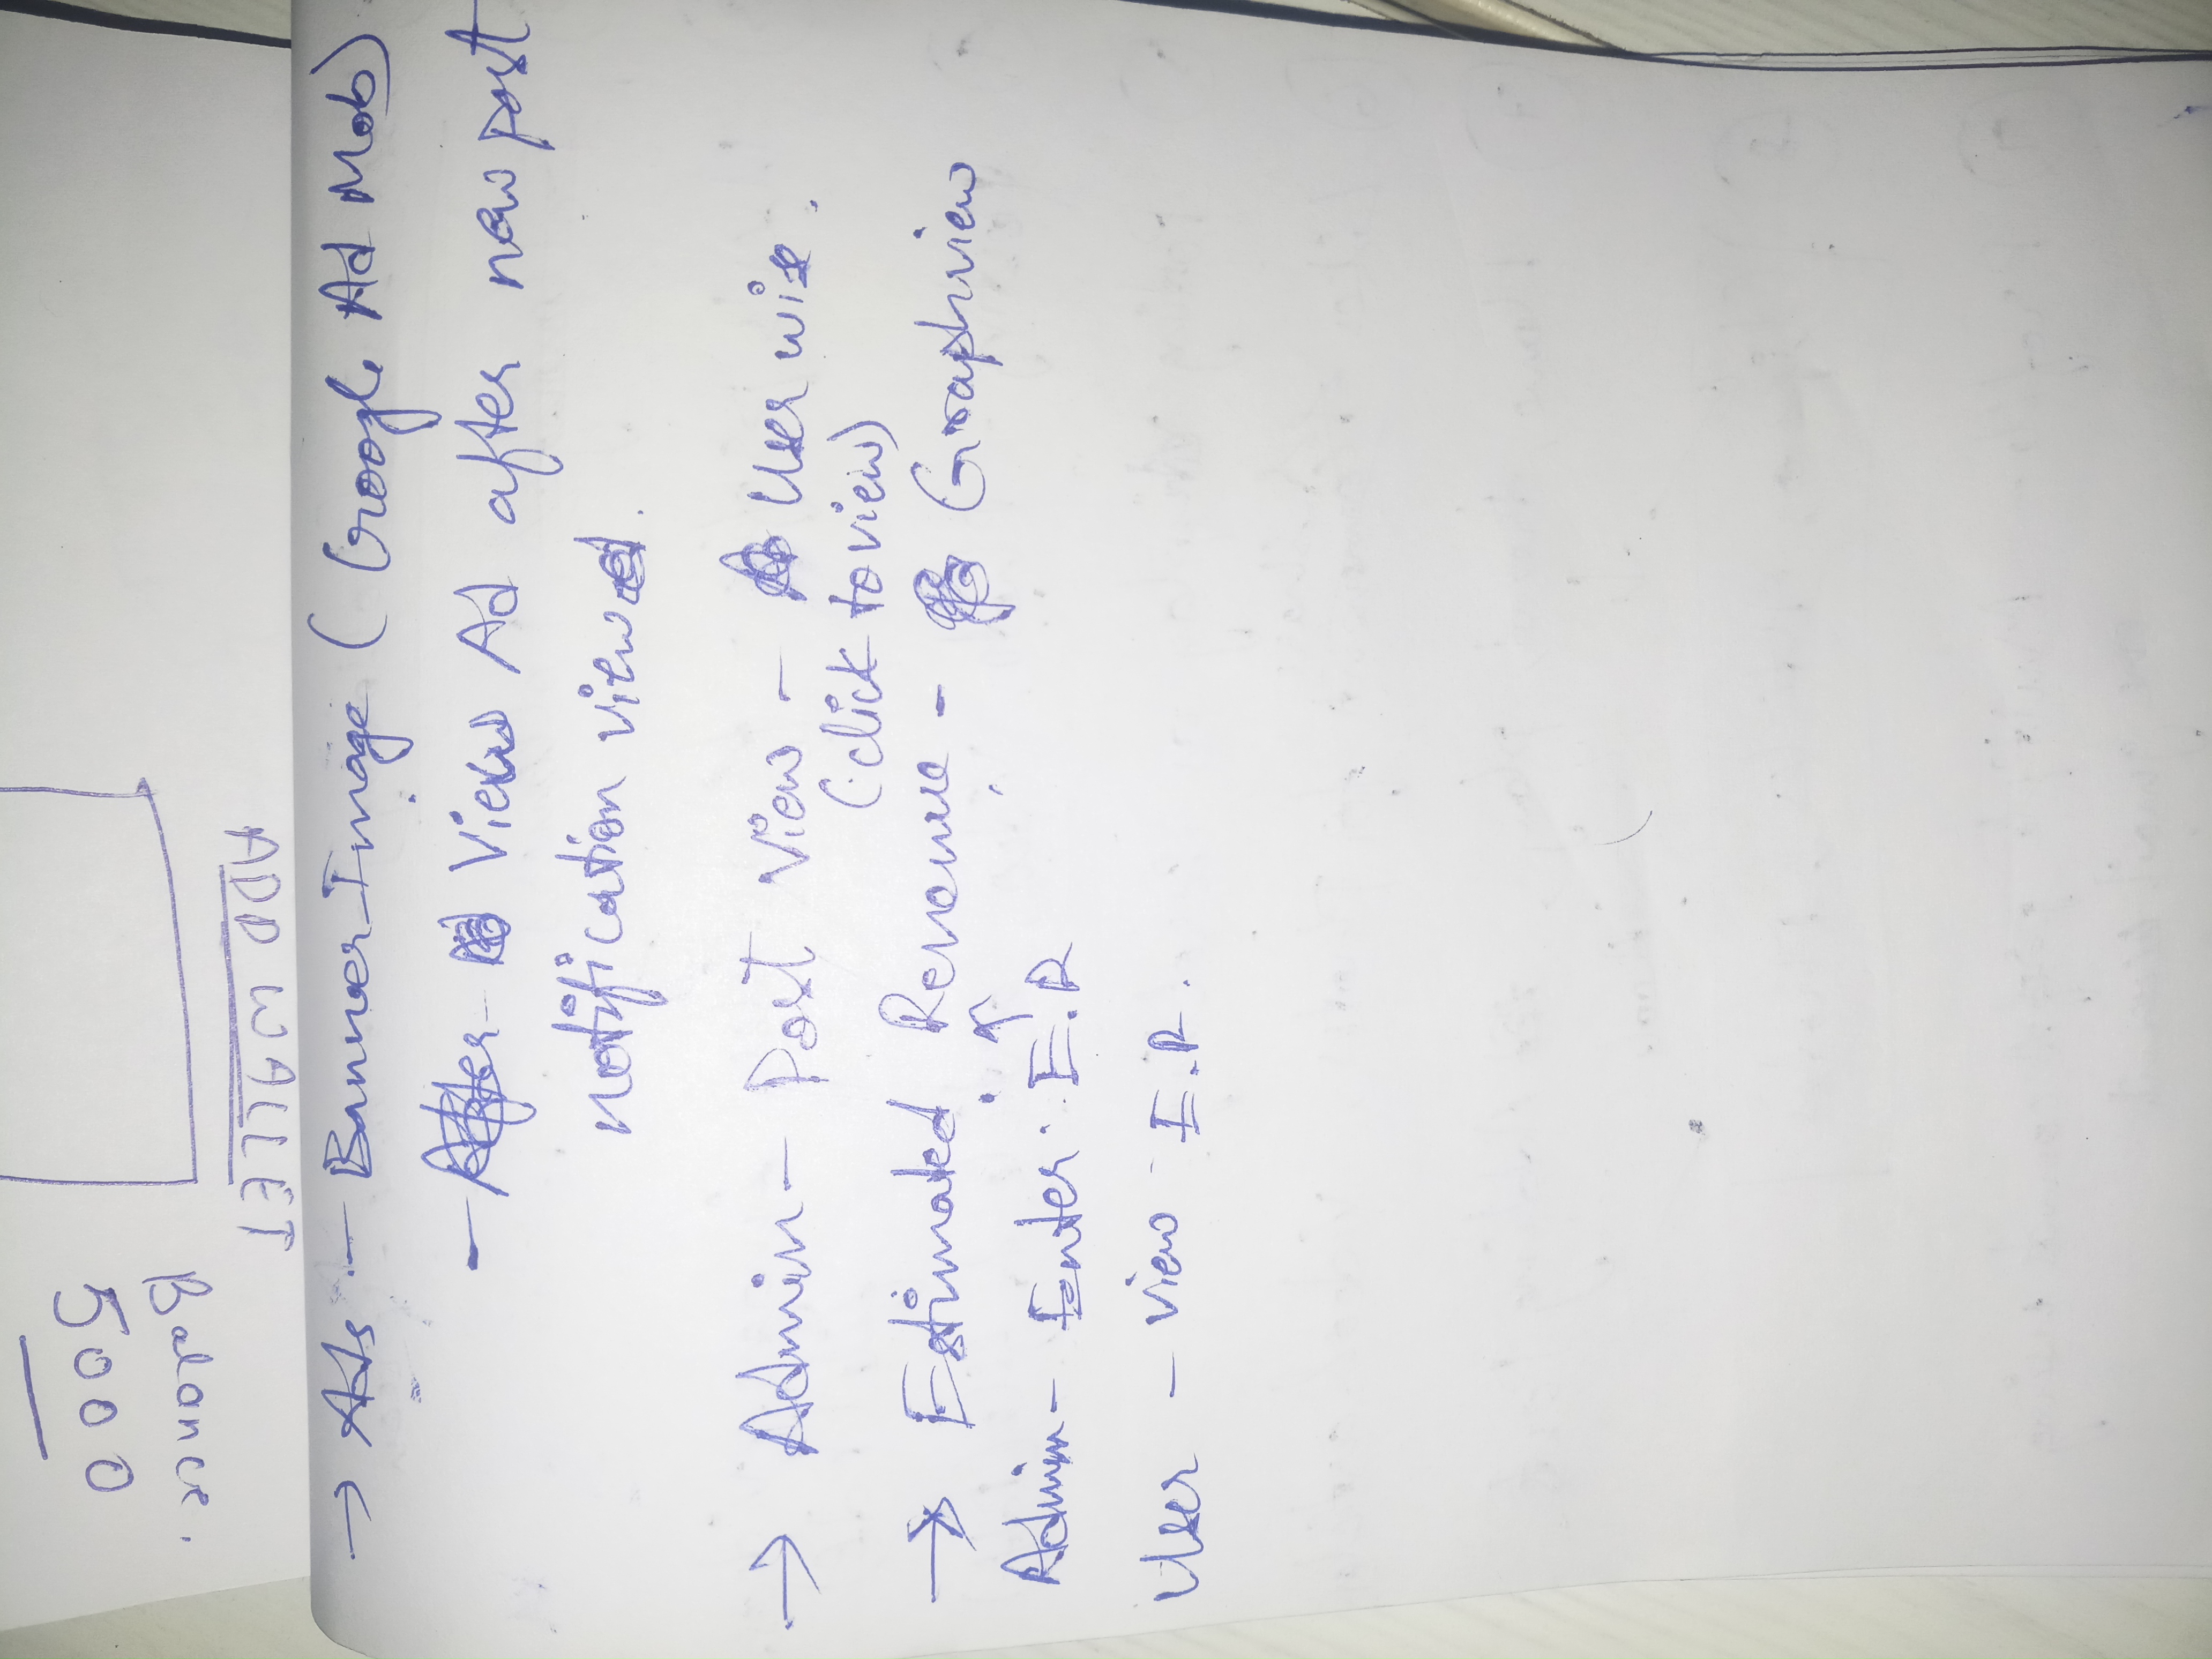 ADD WALLET
Balance.
5000
→ Ads - Banner Image (Google Ad Mob)
- View Ad after new post
notification viewed.
→ Admin - Post View - User wise.
(click to view)
→ Estimated Revenue - Graphview
↑
Admin - Enter E.R
User - view E.R.